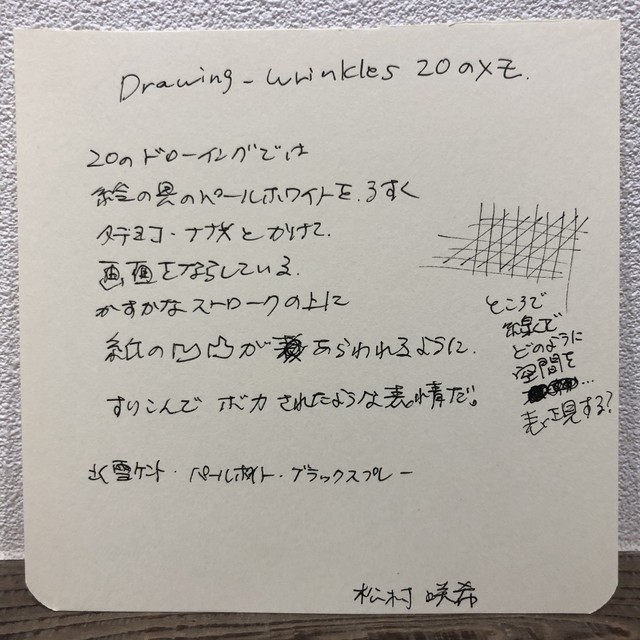 Drawing - Wrinkles 20のメモ.
20のドローイングでは
絵の具のパールホワイトを、うすく
タテヨコ・ナナメとかけて、
画面をならしている。
かすかなストロークの上に
紙の凹凸があらわれるように、
すりこんで ボカされたような表情だ。
氷雪ケント・パールホワイト・ブラックスプレー
松村 咲希
ところで
線で
どのように
空間を
...
表現する?